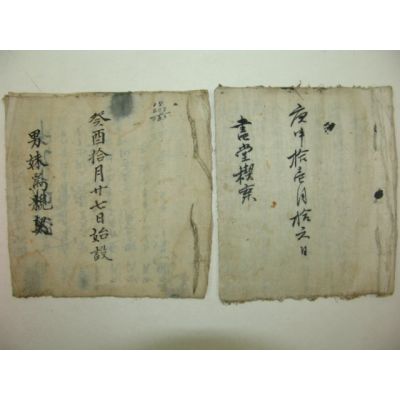 癸酉拾月廿七日始設
男妹爲親契
庚申拾壹月拾六日
書堂稧案